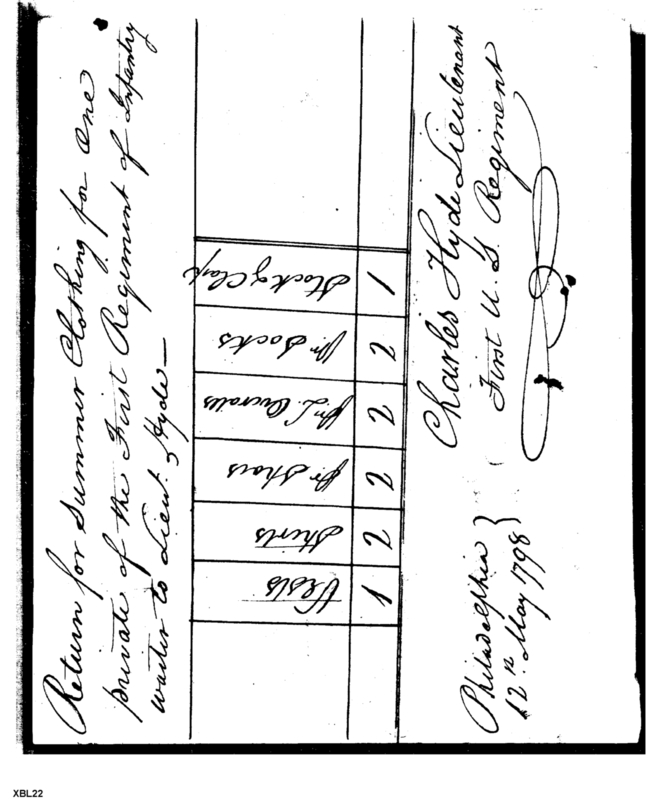 Return for Summer Clothing for One
private of the First Regiment of Infantry
waiter to Lieut. Hyde —
Vests Shirts pr Shoes pr L. Overalls pr Socks Stock & Clasp
1 2 2 2 2 1
Charles Hyde Lieutenant
First U. S. Regiment
Philadelphia }
12th May 1798
XBL22